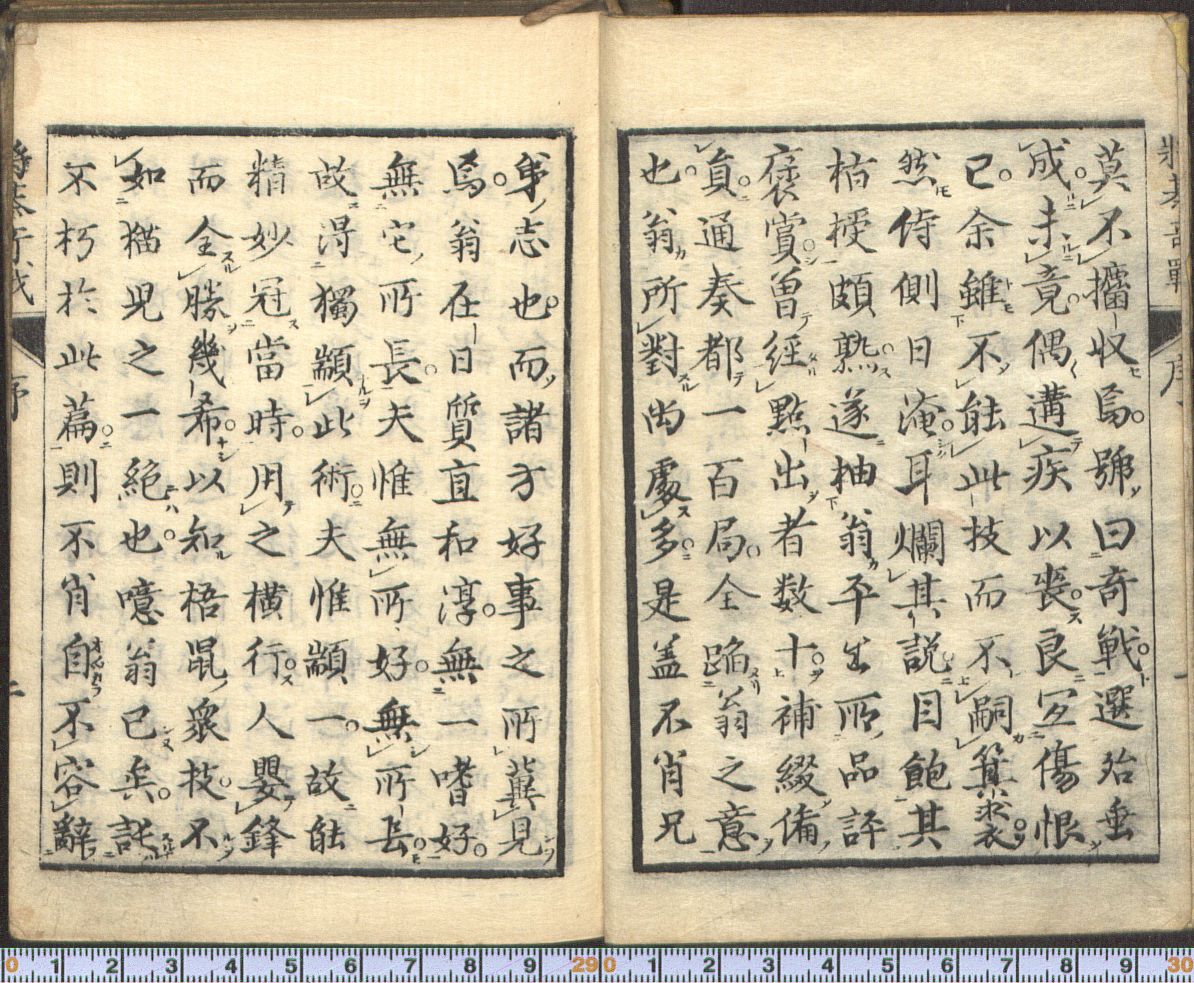 將棊奇戰 序 一
莫不攟收焉號曰奇戰選殆垂
成未竟偶遘疾以喪良寔傷恨
已余雖不能此技而不嗣箕裘
然侍側日淹耳爛其説目飽其
指授頗熟遂抽翁平生所品評
褒賞曽經點出者数十補綴備
員通奏都一百局全蹈翁之意
也翁所對處多是蓋不肖兄
弟志也而諸方好事之所冀見
焉翁在日質直和淳無一嗜好
無它所長夫惟無所好無所長
故得獨顓此術夫惟顓一故能
精妙冠當時用之横行人嬰鋒
而全勝幾希以知梧鼠衆技不
如猫児之一絶也噫翁已矣託
不朽於此篇則不肖自不容辭
將棊奇戰 序 二
0 1 2 3 4 5 6 7 8 9 29 0 1 2 3 4 5 6 7 8 9 30